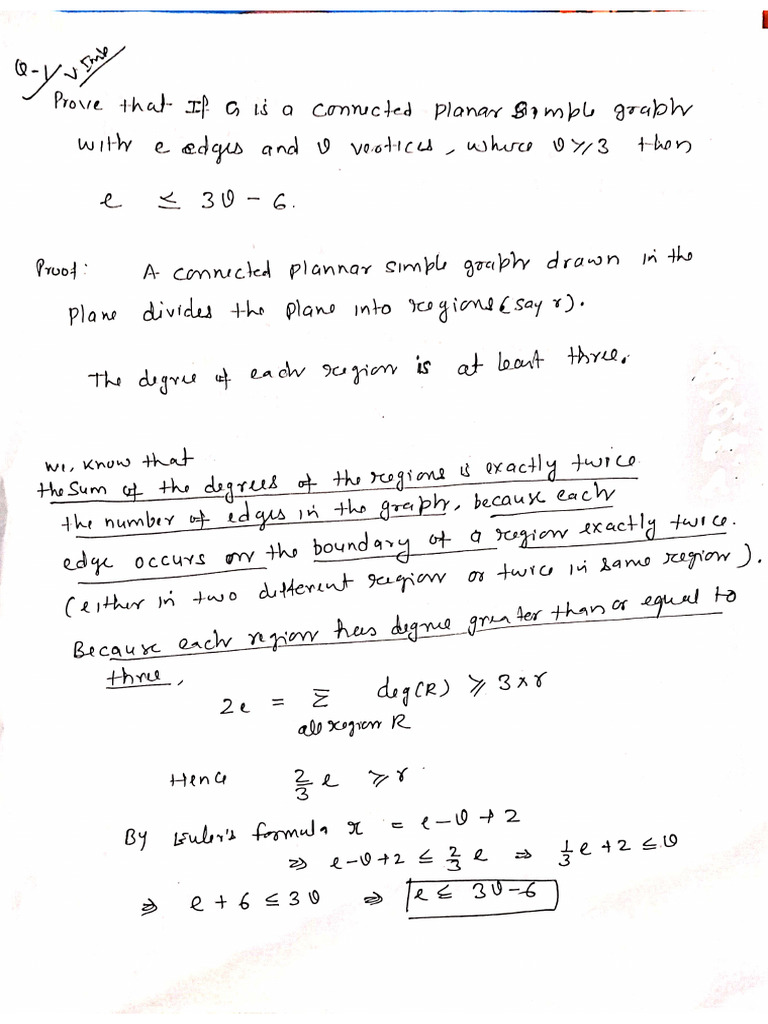 Q-1 V Imp
Prove that If G is a connected planar simple graph
with e edges and v vertices, where v ≥ 3 then
e ≤ 3v - 6.
Proof: A connected plannar simple graph drawn in the
plane divides the plane into regions (say r).
The degree of each region is at least three.
We, know that
the sum of the degrees of the regions is exactly twice
the number of edges in the graph, because each
edge occurs on the boundary of a region exactly twice.
(either in two different region or twice in same region).
Because each region has degree greater than or equal to
three,
2e = Σ deg(R) ≥ 3 × r
all region R
Hence 2/3 e ≥ r
By Euler's formula r = e - v + 2
⇒ e - v + 2 ≤ 2/3 e ⇒ 1/3 e + 2 ≤ v
⇒ e + 6 ≤ 3v ⇒ e ≤ 3v - 6